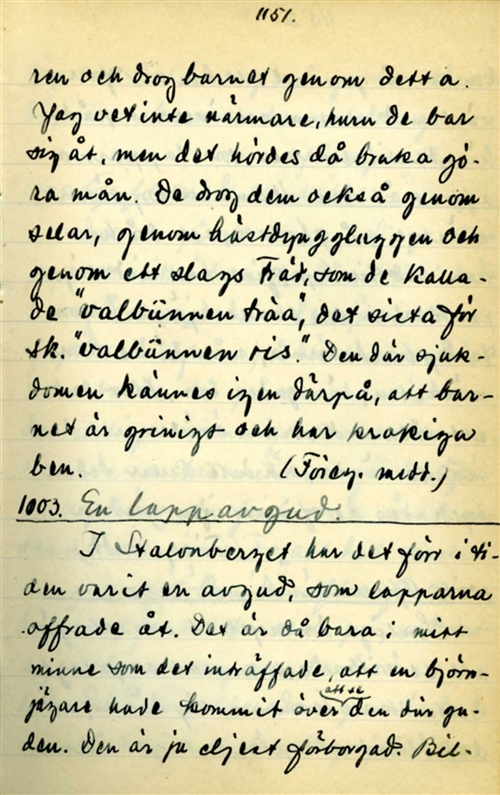 1151.
ren och drog barnet genom detta.
Jag vet inte närmare, huru de bar
sig åt, men det hördes då bruka gö-
ra mån. De drog dem också genom
selar, genom hästdynggluggen och
genom ett slags träd, som de kalla-
de "valbünnen tråa", det sista för
sk. "valbünnen ris." Den där sjuk-
domen kännes igen därpå, att bar-
net är grinigt och har krokiga
ben. (Föreg. medd.)
1003. En lappavgud.
I Stalonberget har det förr i ti-
den varit en avgud, som lapparna
offrade åt. Det är då bara i mitt
minne som det inträffade, att en björn-
jägare hade kommit över att se den där gu-
den. Den är ju eljest förborgad. Bil-